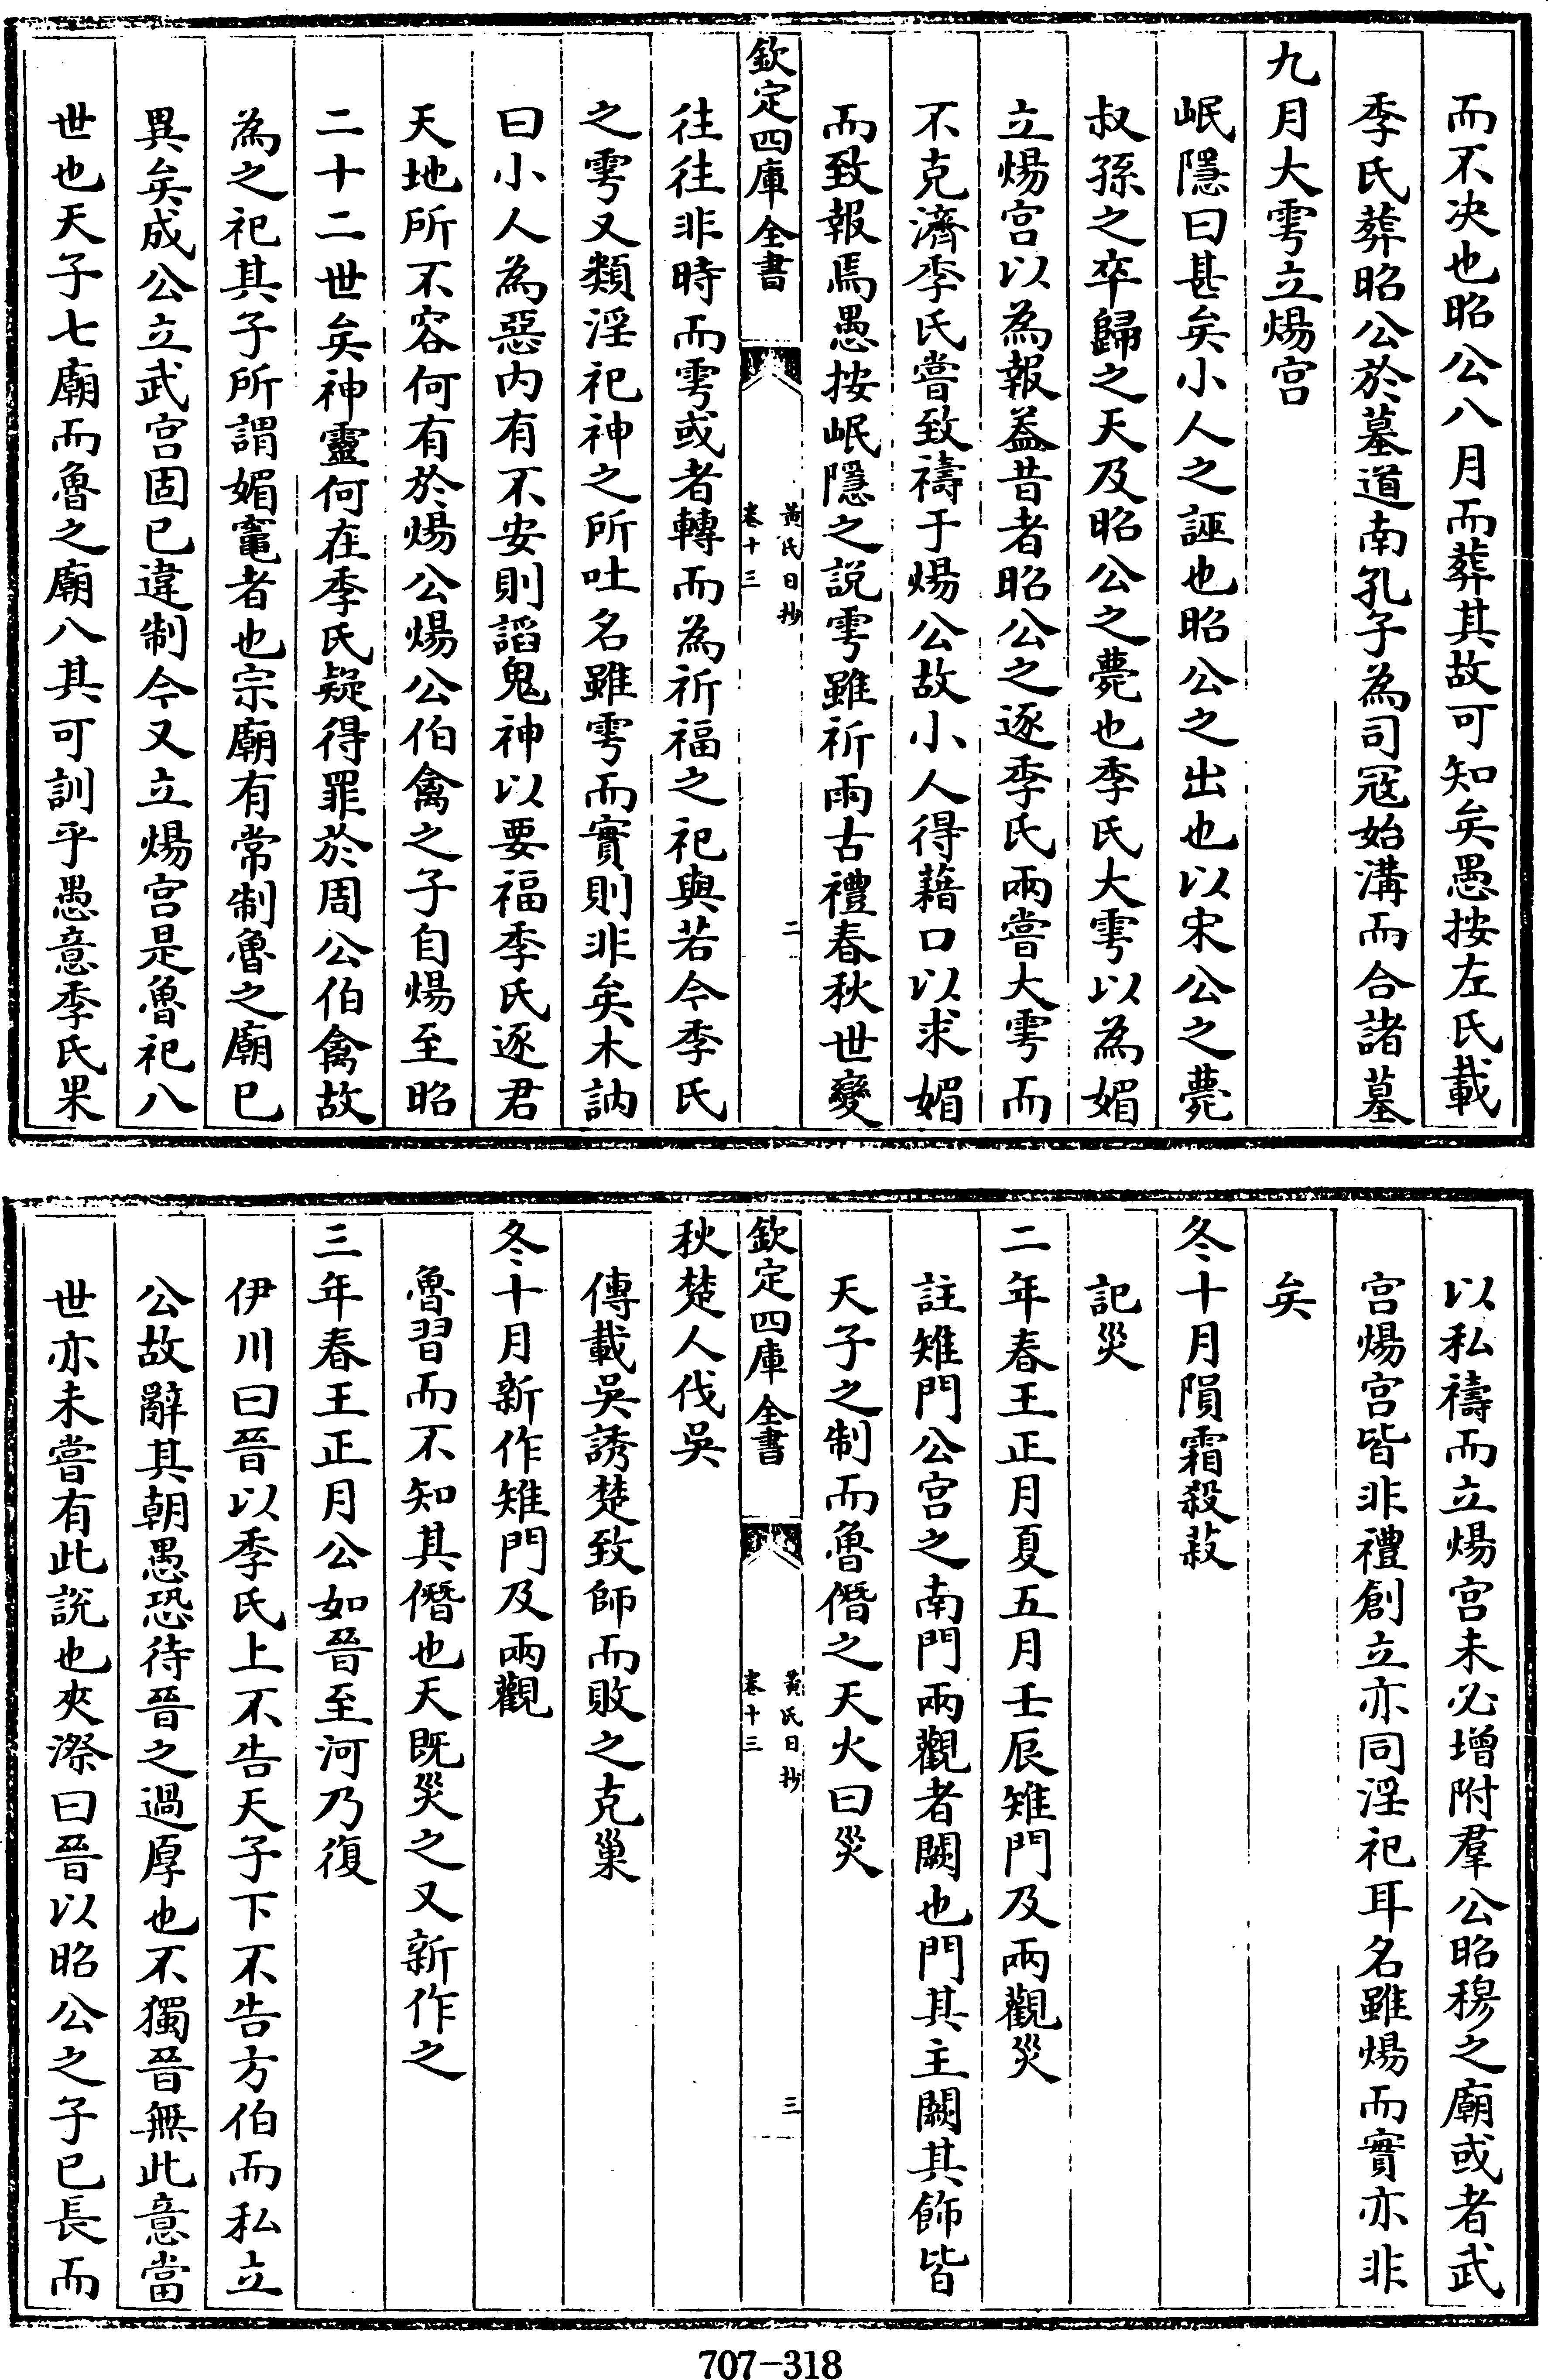 而不决也昭公八月而葬其故可知矣愚按左氏載
季氏葬昭公於墓道南孔子為司冦始溝而合諸墓
九月大雩立煬宫
岷隱曰甚矣小人之誣也昭公之出也以宋公之薨
叔孫之卒歸之天及昭公之薨也季氏大雩以為媚
立煬宫以為報葢昔者昭公之逐季氏兩嘗大雩而
不克濟季氏嘗致禱于煬公故小人得藉口以求媚
而致報焉愚按岷隱之説雩雖祈雨古禮春秋世變
欽定四庫全書
黄氏日抄
卷十三
二
往往非時而雩或者轉而為祈福之祀與若今季氏
之雩又類淫祀神之所吐名雖雩而實則非矣木訥
曰小人為惡内有不安則謟鬼神以要福季氏逐君
天地所不容何有於煬公煬公伯禽之子自煬至昭
二十二世矣神靈何在季氏疑得罪於周公伯禽故
為之祀其子所謂媚竈者也宗廟有常制魯之廟已
異矣成公立武宫固已違制今又立煬宫是魯祀八
世也天子七廟而魯之廟八其可訓乎愚意季氏果
以私禱而立煬宫未必增附羣公昭穆之廟或者武
宫煬宫皆非禮創立亦同淫祀耳名雖煬而實亦非
矣
冬十月隕霜殺菽
記災
二年春王正月夏五月壬辰雉門及兩觀災
註雉門公宫之南門兩觀者闕也門其主闕其飾皆
天子之制而魯僭之天火曰災
欽定四庫全書
黄氏日抄
卷十三
三
秋楚人伐吳
傳載吳誘楚致師而敗之克巢
冬十月新作雉門及兩觀
魯習而不知其僭也天既災之又新作之
三年春王正月公如晉至河乃復
伊川曰晉以季氏上不告天子下不告方伯而私立
公故辭其朝愚恐待晉之過厚也不獨晉無此意當
世亦未嘗有此説也夾漈曰晉以昭公之子已長而
707-318